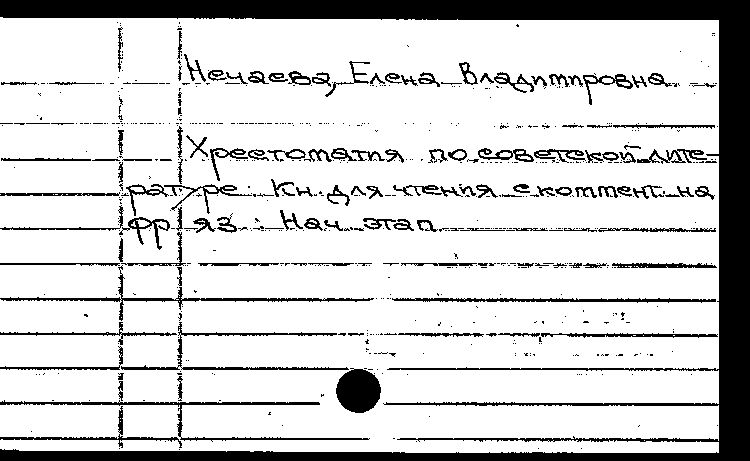 Нечаева, Елена Владимировна
Хрестоматия по советской лите-
ратуре: Кн. для чтения с коммент. на
фр. яз.: Нач. этап